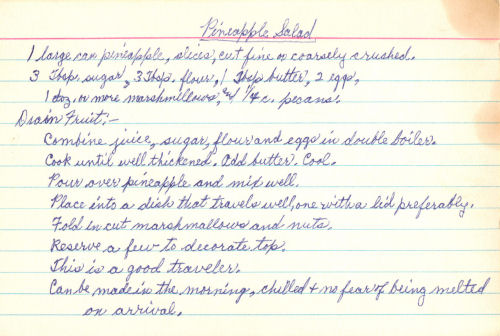 Pineapple Salad
1 large can pineapple, slices, cut fine or coarsely crushed.
3 Tbsp. sugar, 3 Tbsp. flour, 1 Tbsp butter, 2 eggs,
1 doz. or more marshmillows, and 1/4 c. pecans.
Drain Fruit:-
Combine juice, sugar, flour and eggs in double boiler.
Cook until well thickened. Add butter. Cool.
Pour over pineapple and mix well.
Place into a dish that travels well, one with a lid preferably.
Fold in cut marshmallows and nuts.
Reserve a few to decorate top.
This is a good traveler.
Can be made in the morning, chilled + no fear of being melted
on arrival.